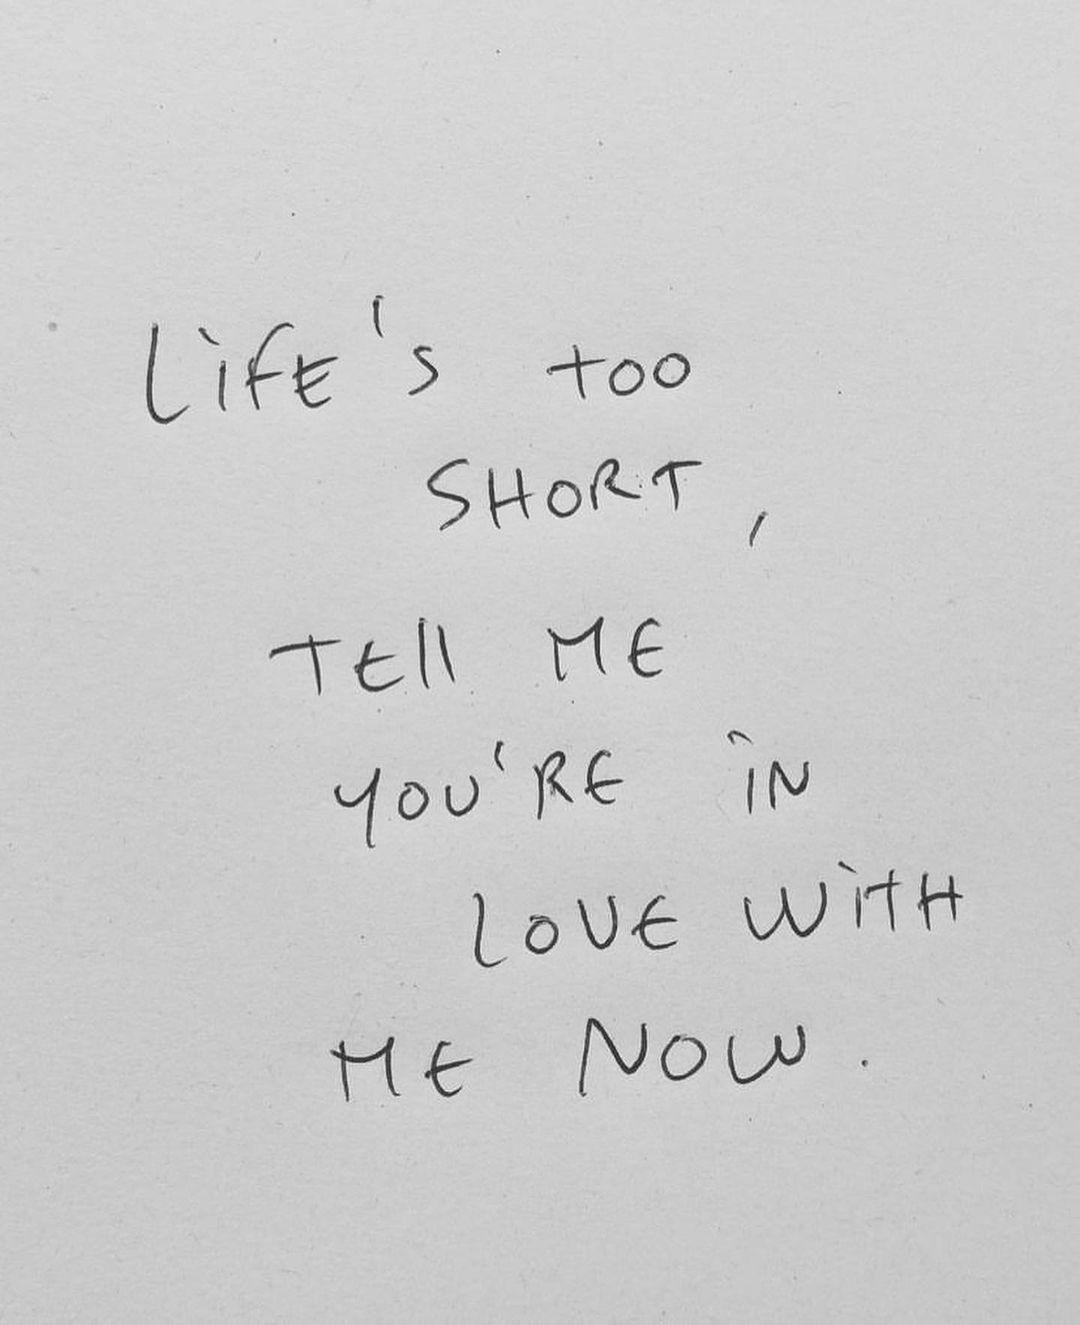 Life's too
SHORT,
TEll ME
YOU'RE iN
LOVE WiTH
ME NOW.